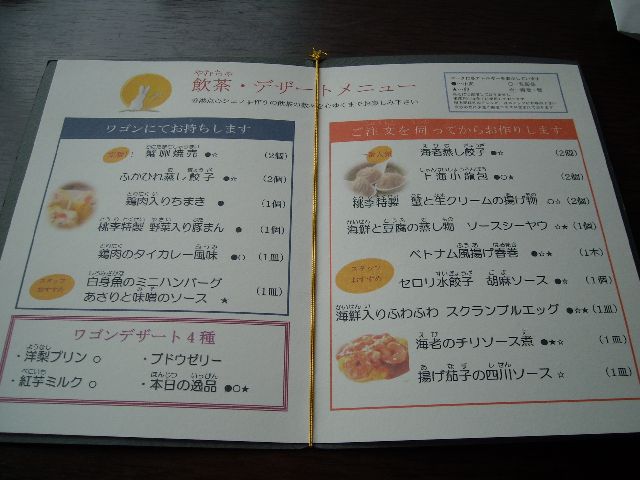 やむちゃ
飲茶・デザートメニュー
ワゴンにてお持ちします
蟹卵焼売 ●☆ (2個)
ふかひれ蒸し餃子 ●☆ (2個)
とりにくい
鶏肉入りちまき ● (1個)
桃李特製 野菜入り豚まん ● (1個)
とりにく ふうみ
鶏肉のタイカレー風味 ●○ (1皿)
スタッフ
おすすめ
しろみざかな
白身魚のミニハンバーグ
あさりと味噌のソース ★ (1皿)
ワゴンデザート4種
ようなし
・洋梨プリン ○
・ブドウゼリー
べにいも
・紅芋ミルク ○
ほんじつ いっぴん
・本日の逸品 ●○★
ご注文を伺ってからお作りします
一番人気
海老蒸し餃子 ●☆ (2個)
上海小龍包 ●○★ (2個)
桃李特製 蟹と生クリームの揚げ物 ○☆ (2個)
海鮮と豆腐の蒸し物 ソースシーヤウ ☆★ (1個)
ベトナム風揚げ春巻 ●☆★ (1本)
スタッフ
おすすめ
セロリ水餃子 胡麻ソース ●☆ (1個)
海鮮入りふわふわ スクランブルエッグ ●☆★ (1皿)
海老のチリソース煮 ●★☆ (1皿)
揚げ茄子の四川ソース ☆ (1皿)